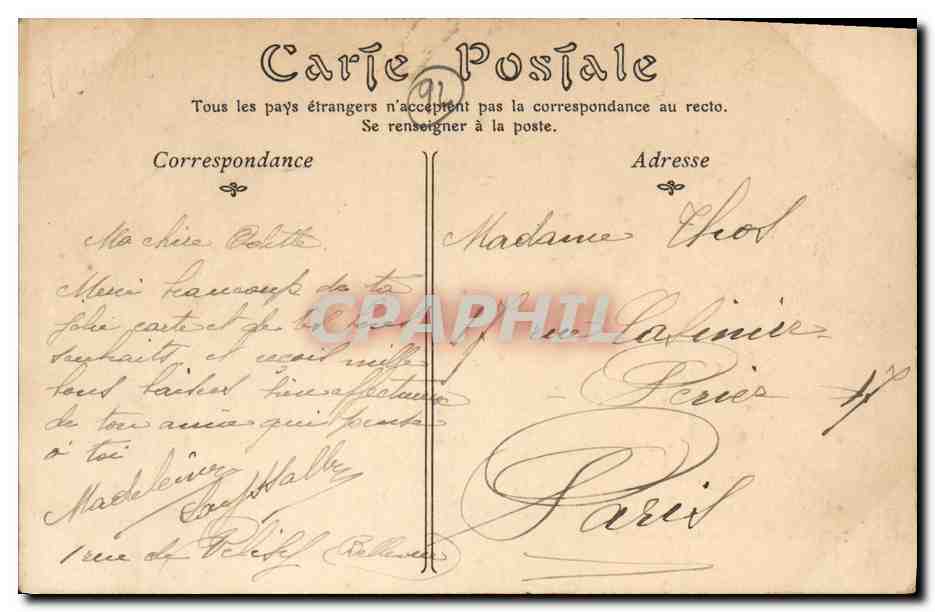 Carte Postale
92
Tous les pays étrangers n'acceptent pas la correspondance au recto.
Se renseigner à la poste.
Correspondance
Ma chère Odette
Merci beaucoup de ta
jolie carte et de tes bons
souhaits, et reçois mille
bons baisers bien affectueux
de ton amie qui pense
à toi
Madeleine
1 rue de (Bellevue)
Adresse
Madame Thos
rue Casimir
Perier 17
Paris
CPAPHIL